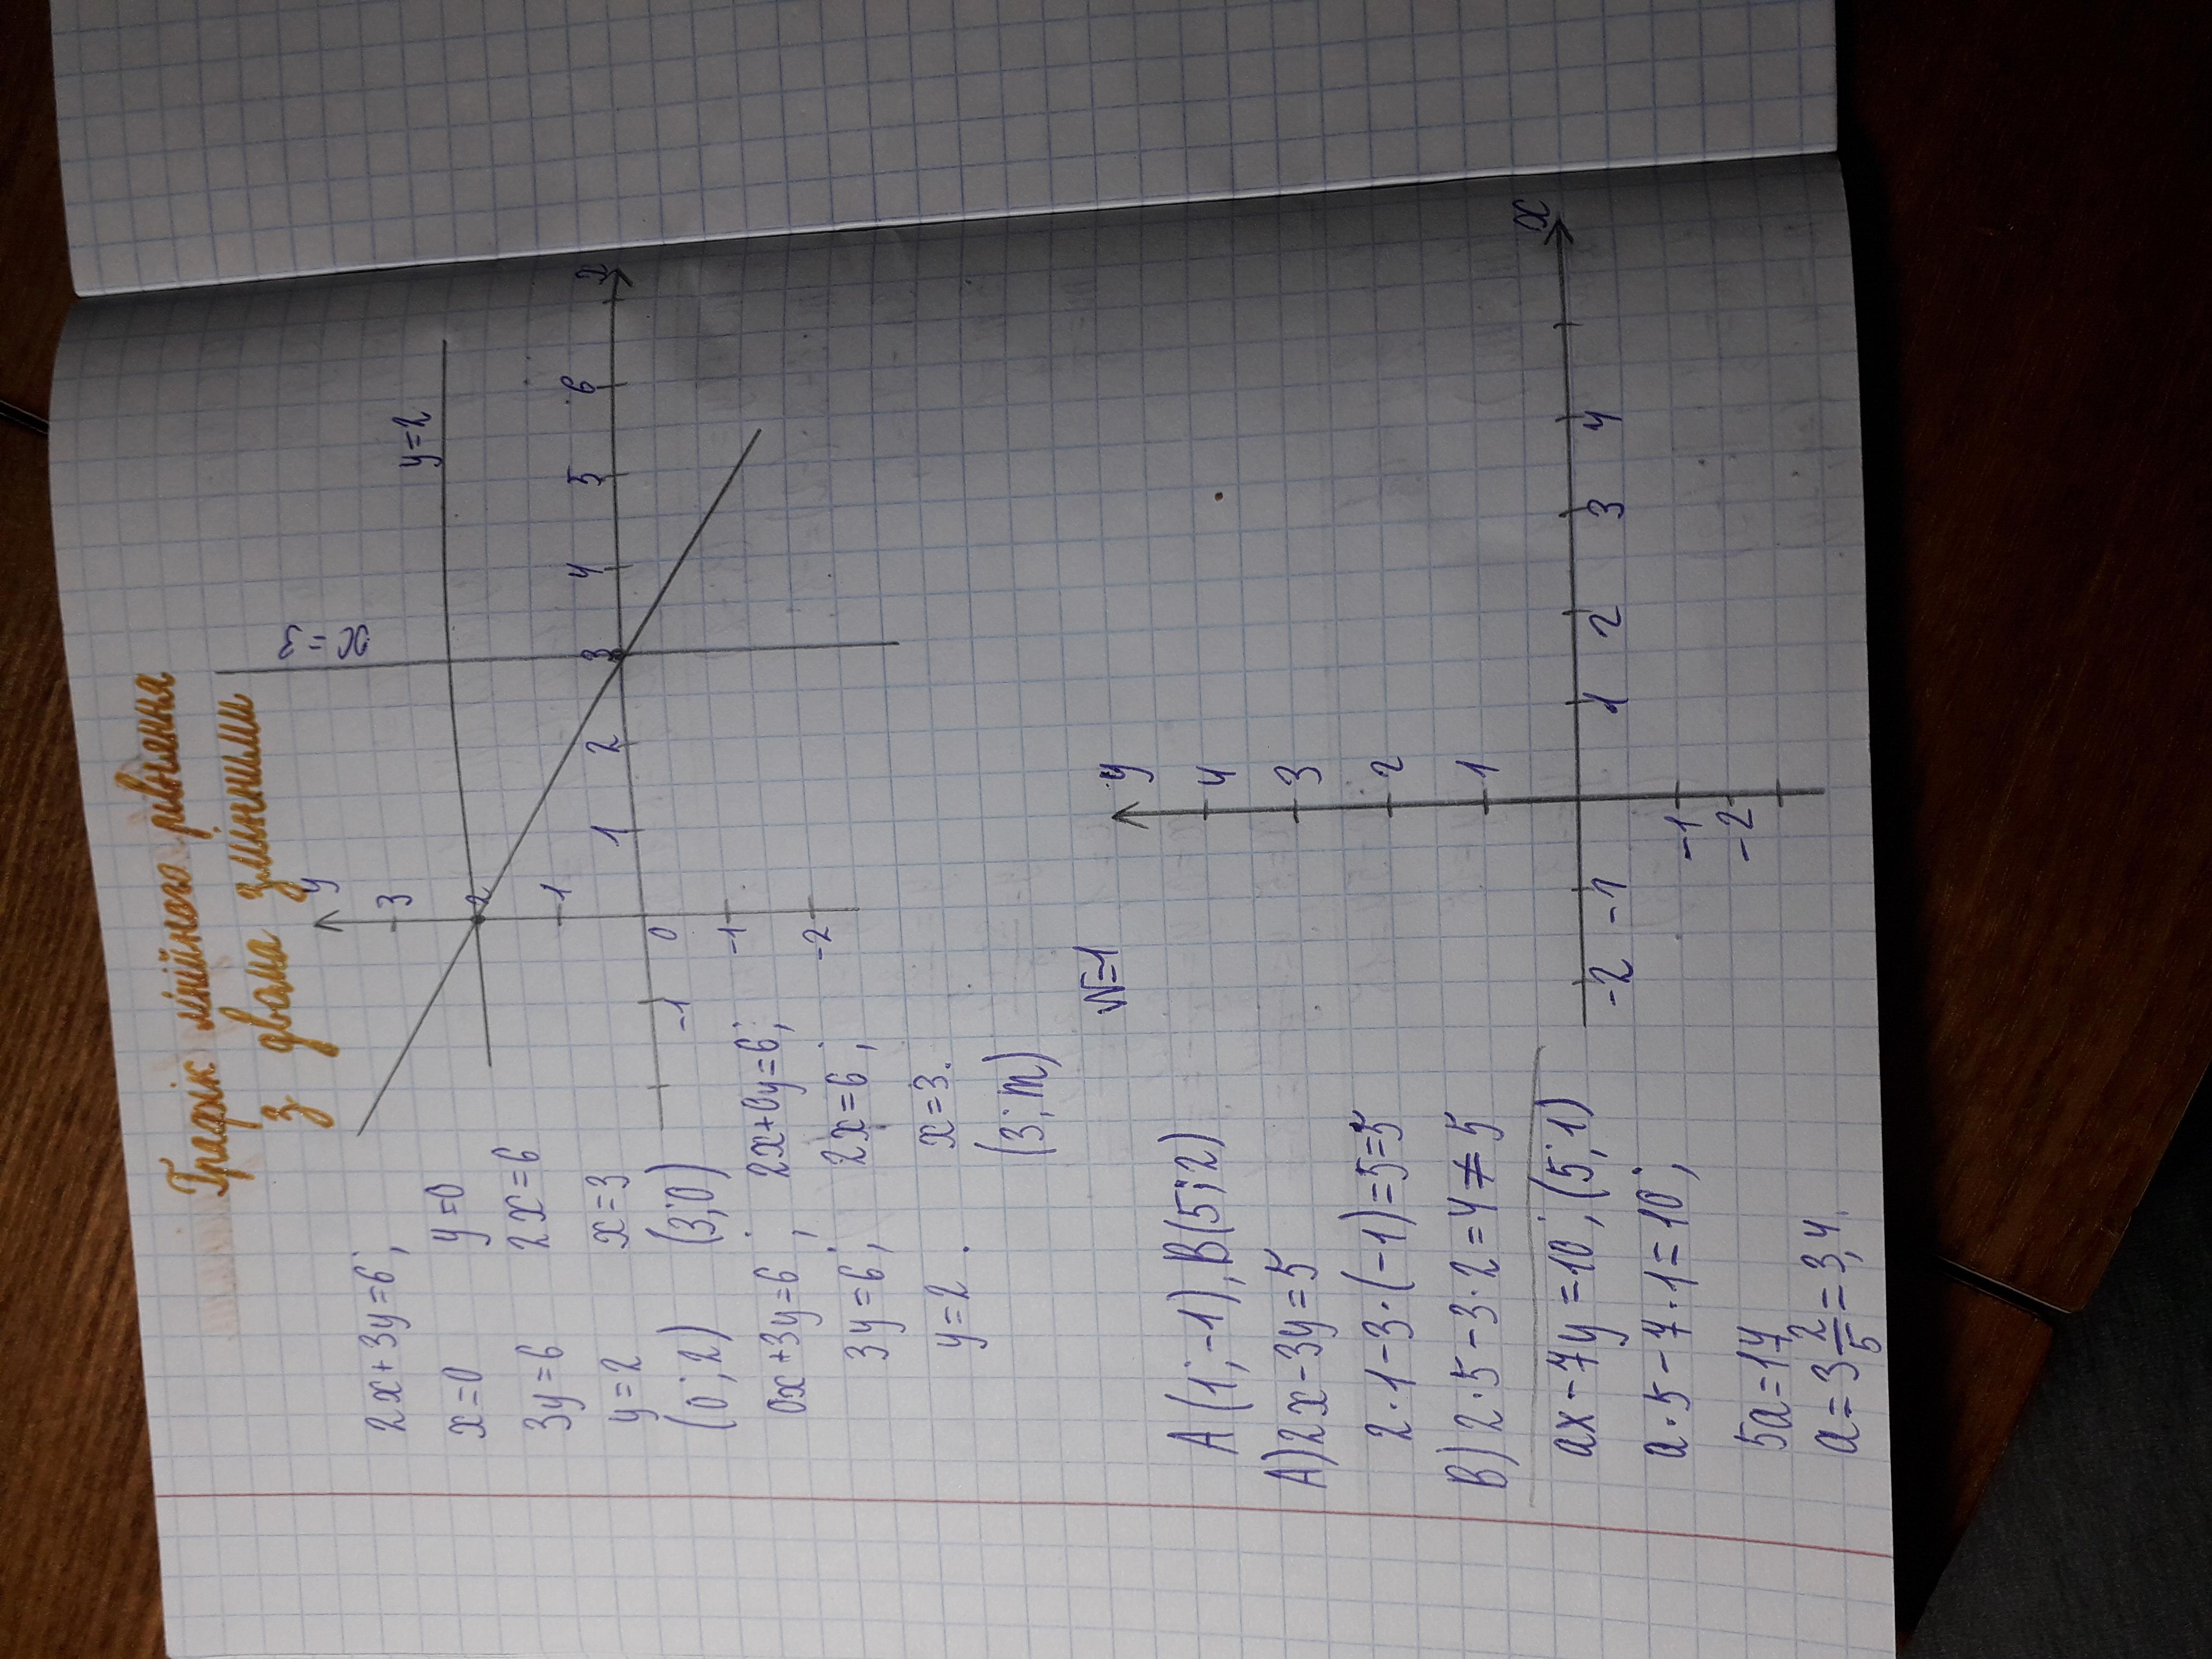 Графік лінійного рівняння
з двома змінними
2x+3y=6;
x=0 y=0
3y=6 2x=6
y=2 x=3
(0;2) (3;0)
0x+3y=6; 2x+0y=6;
3y=6; 2x=6;
y=2. x=3.
(3;m)
y
3
2
1
0
-1
-2
-1
1
2
3
4
5
6
x
x=3
y=2
№1
A(1;-1), B(5;2)
A) 2x-3y=5
2·1-3·(-1)=5=5
B) 2·5-3·2=4≠5
ax-7y=10; (5;1)
a·5-7·1=10;
5a=17
a=3 2/5=3,4.
y
4
3
2
1
-2
-1
1
2
3
4
x
-1
-2